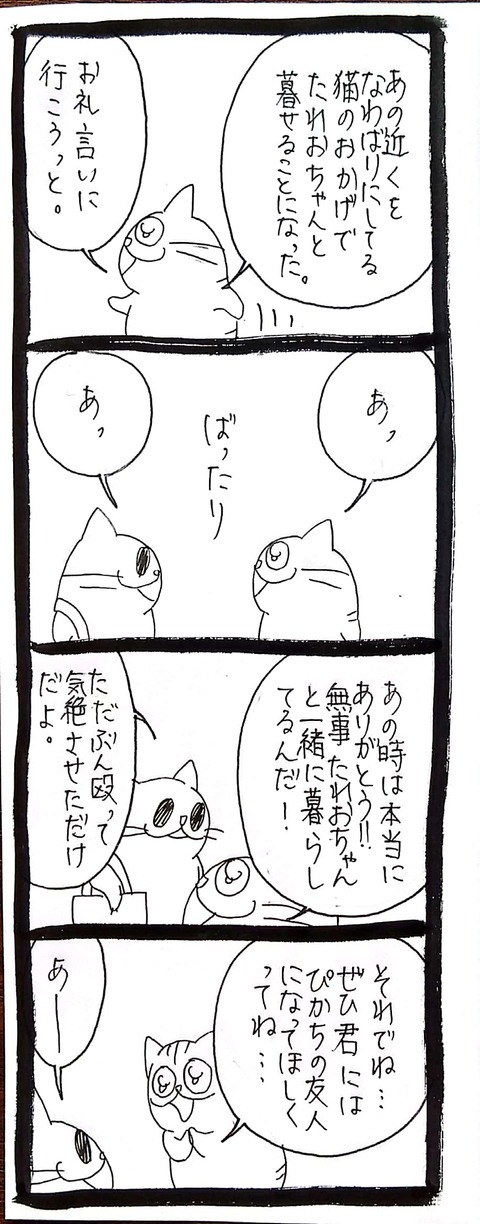 あの近くを
なわばりにしてる
猫のおかげで
たれおちゃんと
暮せることになった。
お礼言いに
行こうっと。
あっ
ばったり
あっ
あの時は本当に
ありがとう!!
無事たれおちゃん
と一緒に暮らし
てるんだ！
ただぶん殴って
気絶させただけ
だよ。
それでね…
ぜひ君には
ぴかちの友人
になってほしく
ってね…
あー